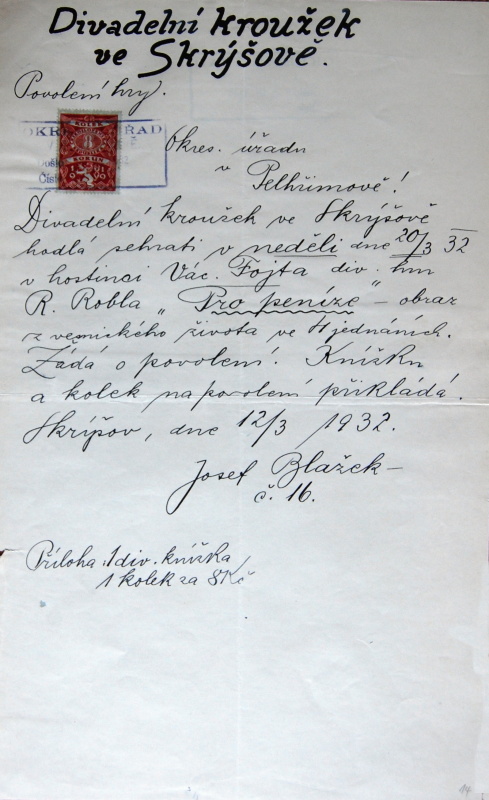 Divadelní kroužek
ve Skrýšově.
Povolení hry.
KOLEK
KORUN
Okres. úřadu
v
Pelhřimově!
Divadelní kroužek ve Skrýšově
hodlá sehrati v neděli dne 20/3 32
v hostinci Vác. Fojta div. hru
R. Robla „Pro peníze" – obraz
z vesnického života ve 4 jednáních.
Žádá o povolení. Knížku
a kolek na povolení přikládá.
Skrýšov, dne 12/3 1932.
Josef Blažek –
č. 16.
Příloha: 1 div. knížka
1 kolek za 8 Kč
14